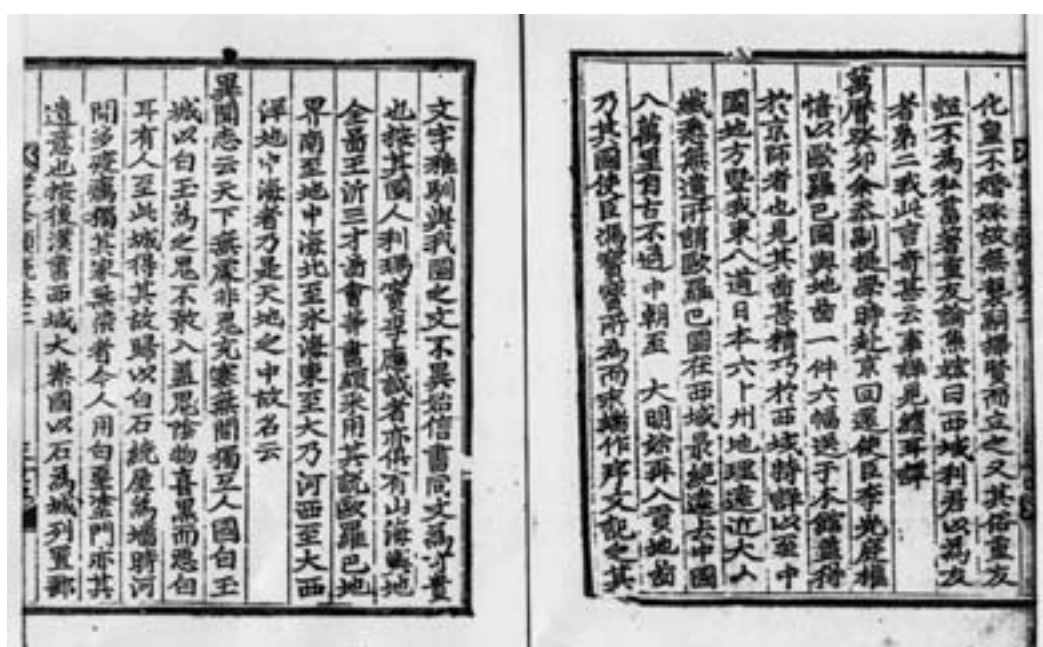 化皇不婚娶故無襲嗣擇賢而立之又其俗重友
誼不爲私蓄著重友論焦竑曰西域利君以爲友
者第二我此言奇甚云事詳見續耳譚
萬曆癸卯余忝副提學時赴京回還使臣李光庭權
憘以歐羅巴國輿地啚一件六幅送于本館蓋得
於京師者也見其啚甚精巧於西域特詳以至中
國地方曁我東八道日本六十州地理遠近大小
纖悉無遺所謂歐羅巴國在西域最絶遠去中國
八萬里自古不通中朝至 大明始再入貢地啚
乃其國使臣馮寶寶所爲而末端作序文記之其
文字雅馴與我國之文不異始信書同文爲可貴
也按其國人利瑪竇李應誠者亦俱有山海輿地
全啚王沂三才啚會等書頗采用其說歐羅巴地
界南至地中海北至氷海東至大乃河西至大西
洋地中海者乃是天地之中故名云
異聞志云天下無處非鬼充塞無間獨互人國白玉
城以白玉爲之鬼不敢入蓋鬼陰物喜黑而惡白
耳有人至此城得其故歸以白石統屋爲墻時河
間多疫癘獨其家無染者今人用白堊塗門亦其
遺意也按後漢書西域大秦國以石爲城列置郵